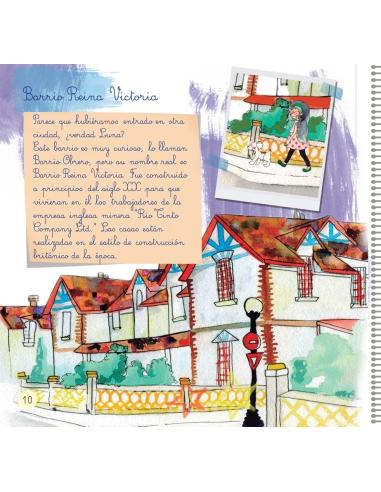 Barrio Reina Victoria
Parece que hubiéramos entrado en otra
ciudad, ¿verdad Luna?
Este barrio es muy curioso, lo llaman
Barrio Obrero, pero su nombre real es
Barrio Reina Victoria. Fue construido
a principios del siglo XX para que
vivieran en él los trabajadores de la
empresa inglesa minera "Rio Tinto
Company Ltd." Las casas están
realizadas en el estilo de construcción
británico de la época.
10